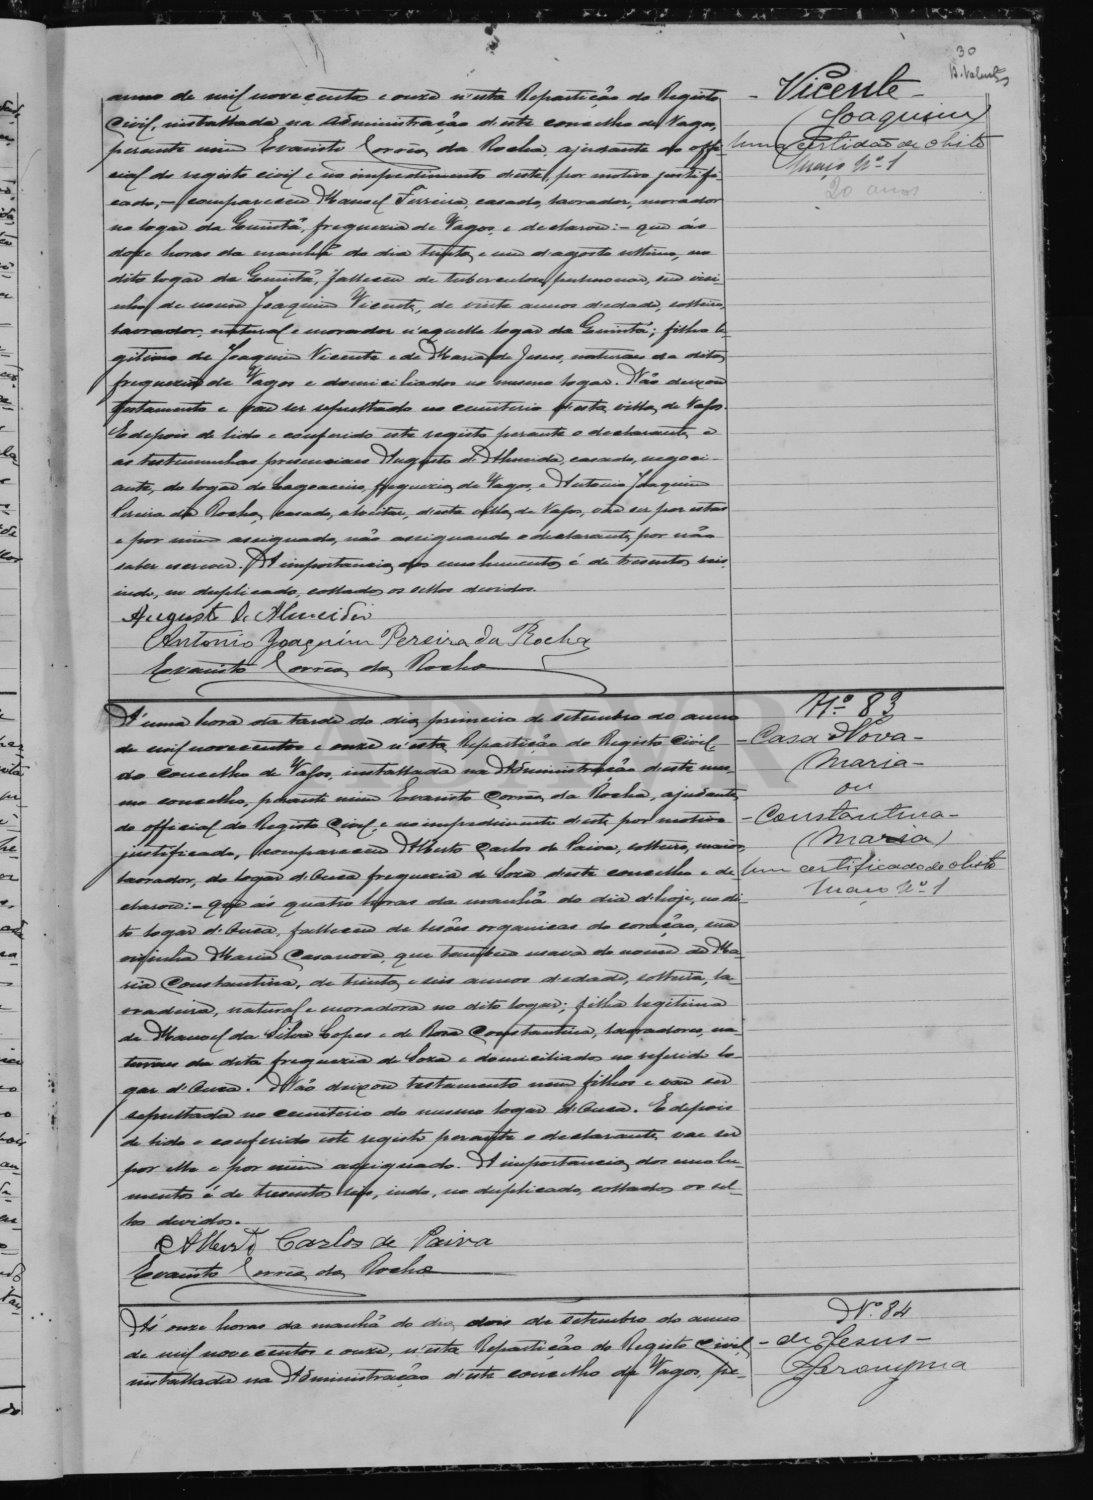 30
- Vicente -
Joaquim
Uma certidão de obito
Maço Nº 1
20 anos
anno de mil nove centos e onze n'esta Repartição do Registo
Civil, installada na Administração d'este concelho de Vagos,
perante mim Evaristo Corrêa da Rocha, ajudante do offi-
cial do registo civil e no impedimento d'este, por motivo justifi-
cado, - compareceu Manoel Ferreira, casado, lavrador, morador
no logar da Quintã, freguezia de Vagos, e declarou: - que ás
doze horas da manhã do dia trinta e um d'agosto ultimo, no
dito logar da Quintã, falleceu de tuberculose pulmonar, seu visi-
nho de nome Joaquim Vicente, de vinte annos d'edade, solteiro,
lavrador, natural e morador n'aquelle logar da Quintã; filho le-
gitimo de Joaquim Vicente e de Maria de Jesus, naturaes da dita
freguezia de Vagos e domiciliados no mesmo logar. Não deixou
testamento e vae ser sepultado no cemiterio d'esta villa de Vagos.
E depois de lido e conferido este registo perante o declarante e
as testemunhas presenciaes Augusto d'Almeida, casado, negoci-
ante, do logar de freguezia de Vagos, e Antonio Joaquim
Pereira da Rocha, casado, d'esta villa de Vagos, vae ser por estas
e por mim assignado, não assignando o declarante, por não
saber escrever. A importancia dos emolumentos é de tresentos reis,
indo, no duplicado, collados os sellos devidos.
Augusto de Almeida
Antonio Joaquim Pereira da Rocha
Evaristo Corrêa da Rocha
Nº 83
- Casa Nova -
Maria -
ou
- Constantina -
(Maria)
Um certificado de obito
Maço Nº 1
A' uma hora da tarde do dia primeiro de setembro do anno
de mil novecentos e onze n'esta Repartição do Registo Civil
do concelho de Vagos, installada na Administração d'este mes-
mo concelho, perante mim Evaristo Corrêa da Rocha, ajudante
do official do Registo Civil e no impedimento d'este por motivo
justificado, compareceu Alberto Carlos de Paiva, solteiro, maior,
lavrador, do logar d'Ouca freguezia de Soza d'este concelho e de-
clarou: - que ás quatro horas da manhã do dia d'hoje, no di-
to logar d'Ouca, falleceu de lesões organicas do coração, sua
visinha Maria Casanova, que tambem usava do nome de Ma-
ria Constantina, de trinta e seis annos d'edade, solteira, la-
vradeira, natural e moradora no dito logar; filha legitima
de Manoel da Silva Lopes e de Rosa Constantina, lavradores, na-
turaes da dita freguezia de Soza e domiciliados no referido lo-
gar d'Ouca. Não deixou testamento nem filhos e vae ser
sepultada no cemiterio do mesmo logar d'Ouca. E depois
de lido e conferido este registo perante o declarante, vae ser
por elle e por mim assignado. A importancia dos emolu-
mentos é de tresentos reis, indo, no duplicado, collados os sel-
los devidos.
Alberto Carlos de Paiva
Evaristo Corrêa da Rocha
Nº 84
- de Jesus -
Jeronyma
A's onze horas da manhã do dia dois de setembro do anno
de mil novecentos e onze, n'esta Repartição do Registo Civil,
installada na Administração d'este concelho de Vagos, pe-